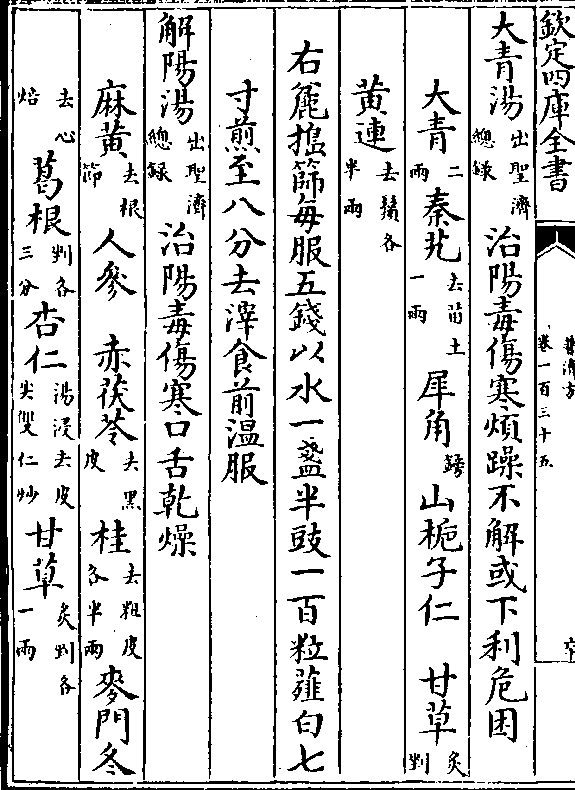 欽定四庫全書
普濟方
卷一百三十五
大青湯出聖濟總録治陽毒傷寒煩躁不解或下利危困
大青二兩秦艽去苗土一兩犀角鎊山梔子仁甘草炙剉
黄連去鬚各半兩
右麄搗篩每服五錢以水一盞半豉一百粒薤白七
寸煎至八分去滓食前温服
解陽湯出聖濟總録治陽毒傷寒口舌乾燥
麻黄去根節人參赤茯苓去黑皮桂去粗皮各半兩麥門冬
去心焙葛根剉各三分杏仁湯浸去皮尖雙仁炒甘草炙剉各一兩